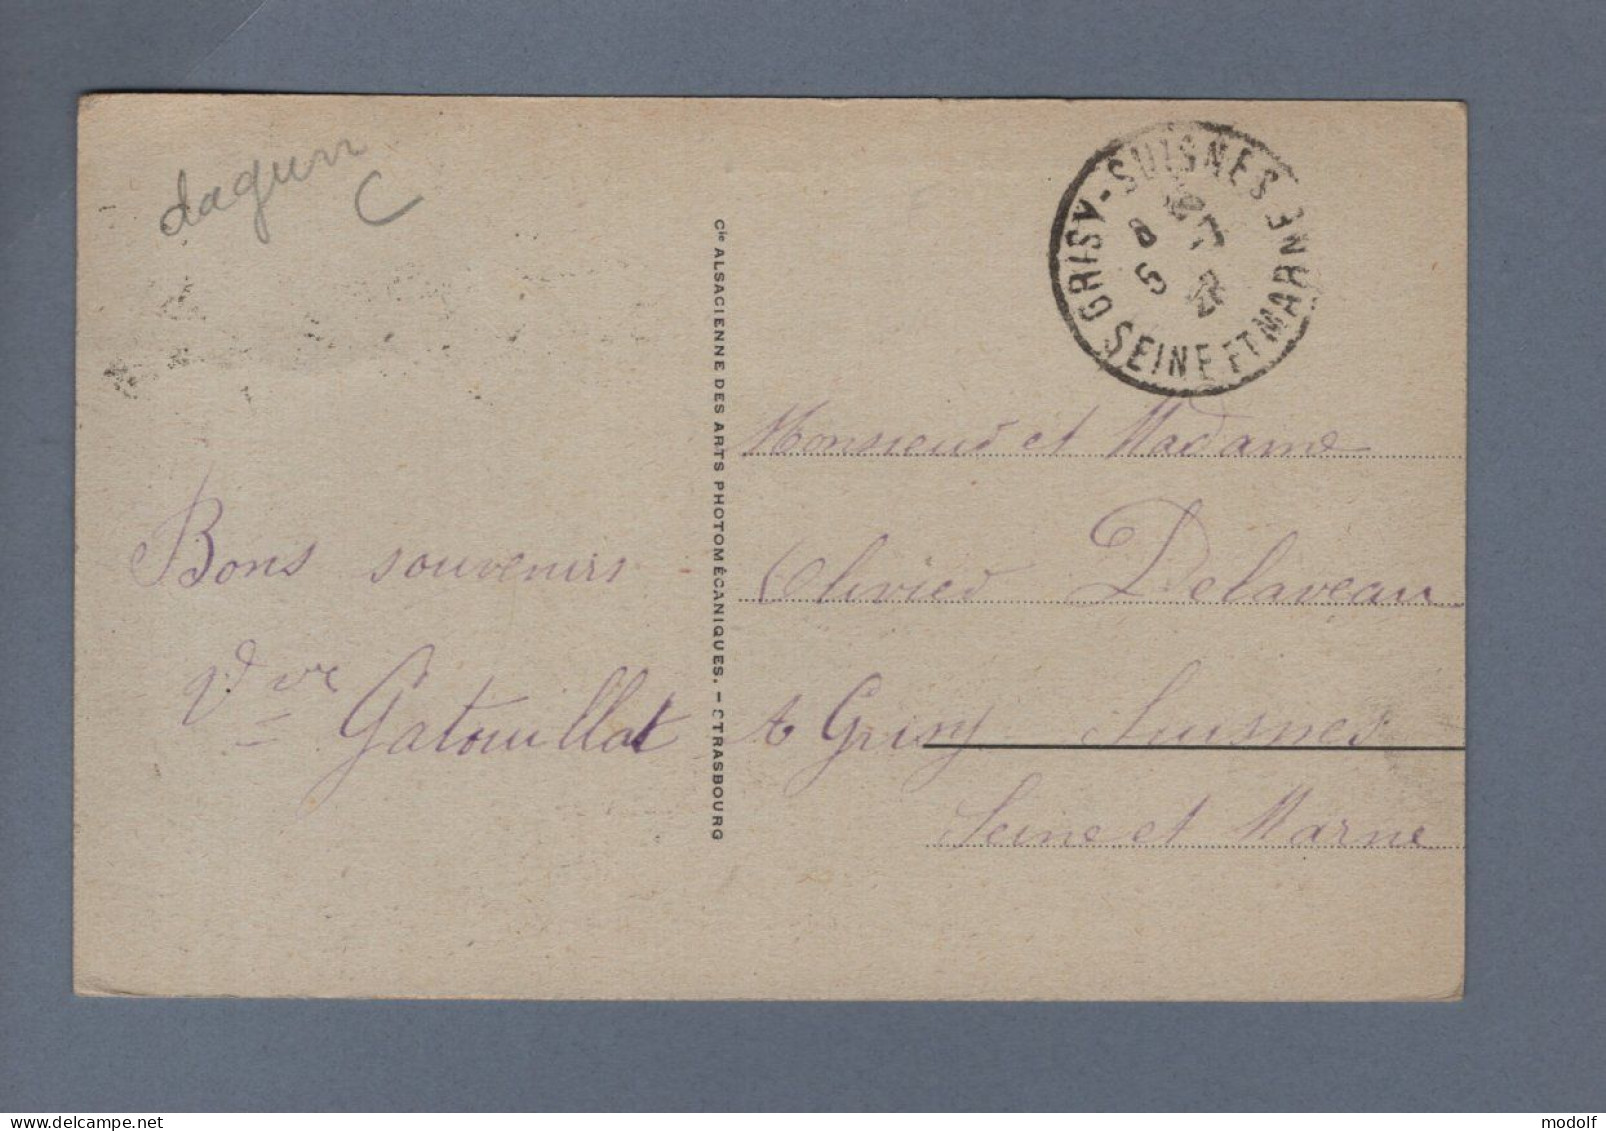 daguin
C
GRISY-SUISNES
SEINE ET MARNE
8
5
Cie ALSACIENNE DES ARTS PHOTOMÉCANIQUES. – STRASBOURG
Bons souvenirs
Vve Gatouillat
Monsieur et Madame
Olivier Delaveau
à Grisy Suisnes
Seine et Marne
delcampe.net
modolf